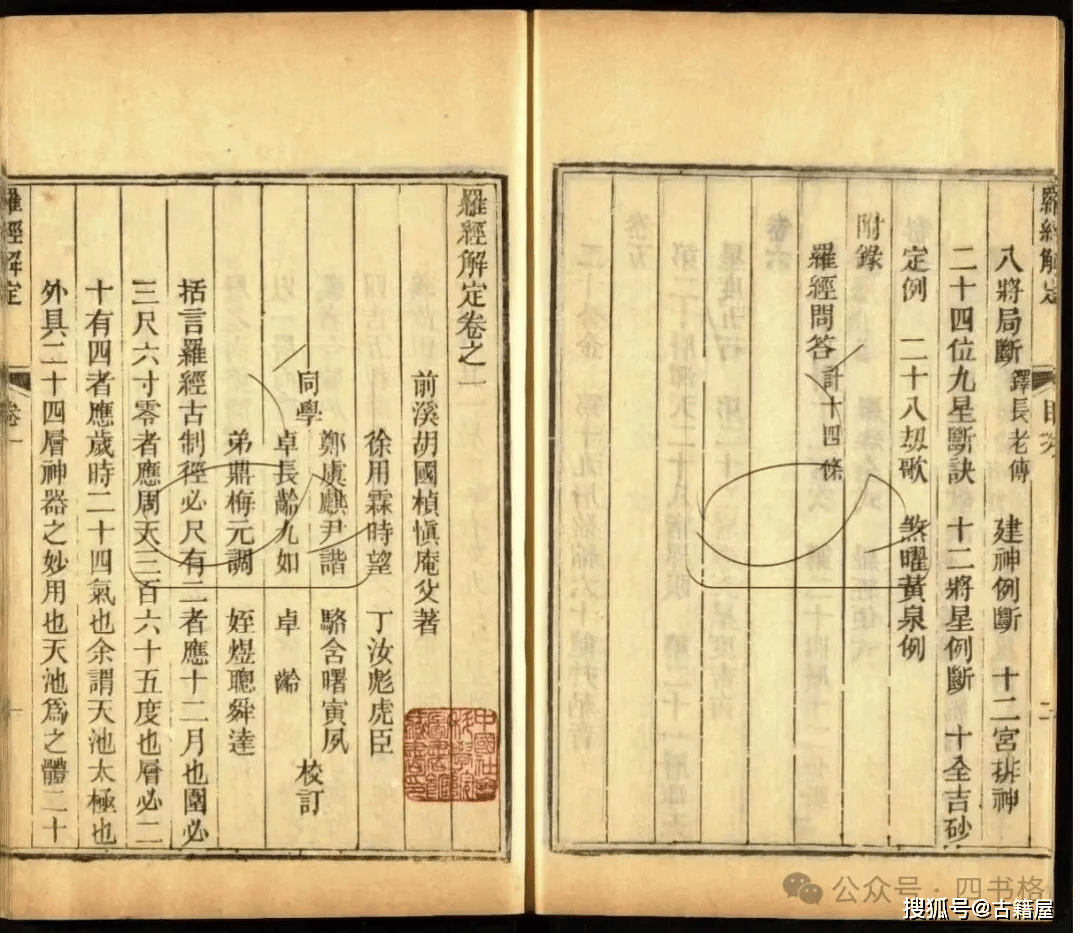 羅經解定
目次
二
八將局斷 鐸長老傳 建神例斷 十二宮排神
二十四位九星斷訣 十二將星例斷 十全吉砂
定例 二十八刼歌 煞曜黃泉例
附錄
羅經問答 計十四條
羅經解定卷之一
前溪胡國楨愼庵父著
徐用霖時望 丁汝彪虎臣
同學 鄭虞麒尹諧 駱舍曙寅夙
卓長齡九如 卓 齡 校訂
弟鼎梅元調 姪煜聰舜達
括言羅經古制徑必尺有二者應十二月也圍必
三尺六寸零者應周天三百六十五度也層必二
十有四者應歲時二十四氣也余謂天池太極也
外具二十四層神器之妙用也天池爲之體二十
羅經解定
卷一
中國社會科學院
圖書館
藏書印
公众号·四书格
搜狐号@古籍屋